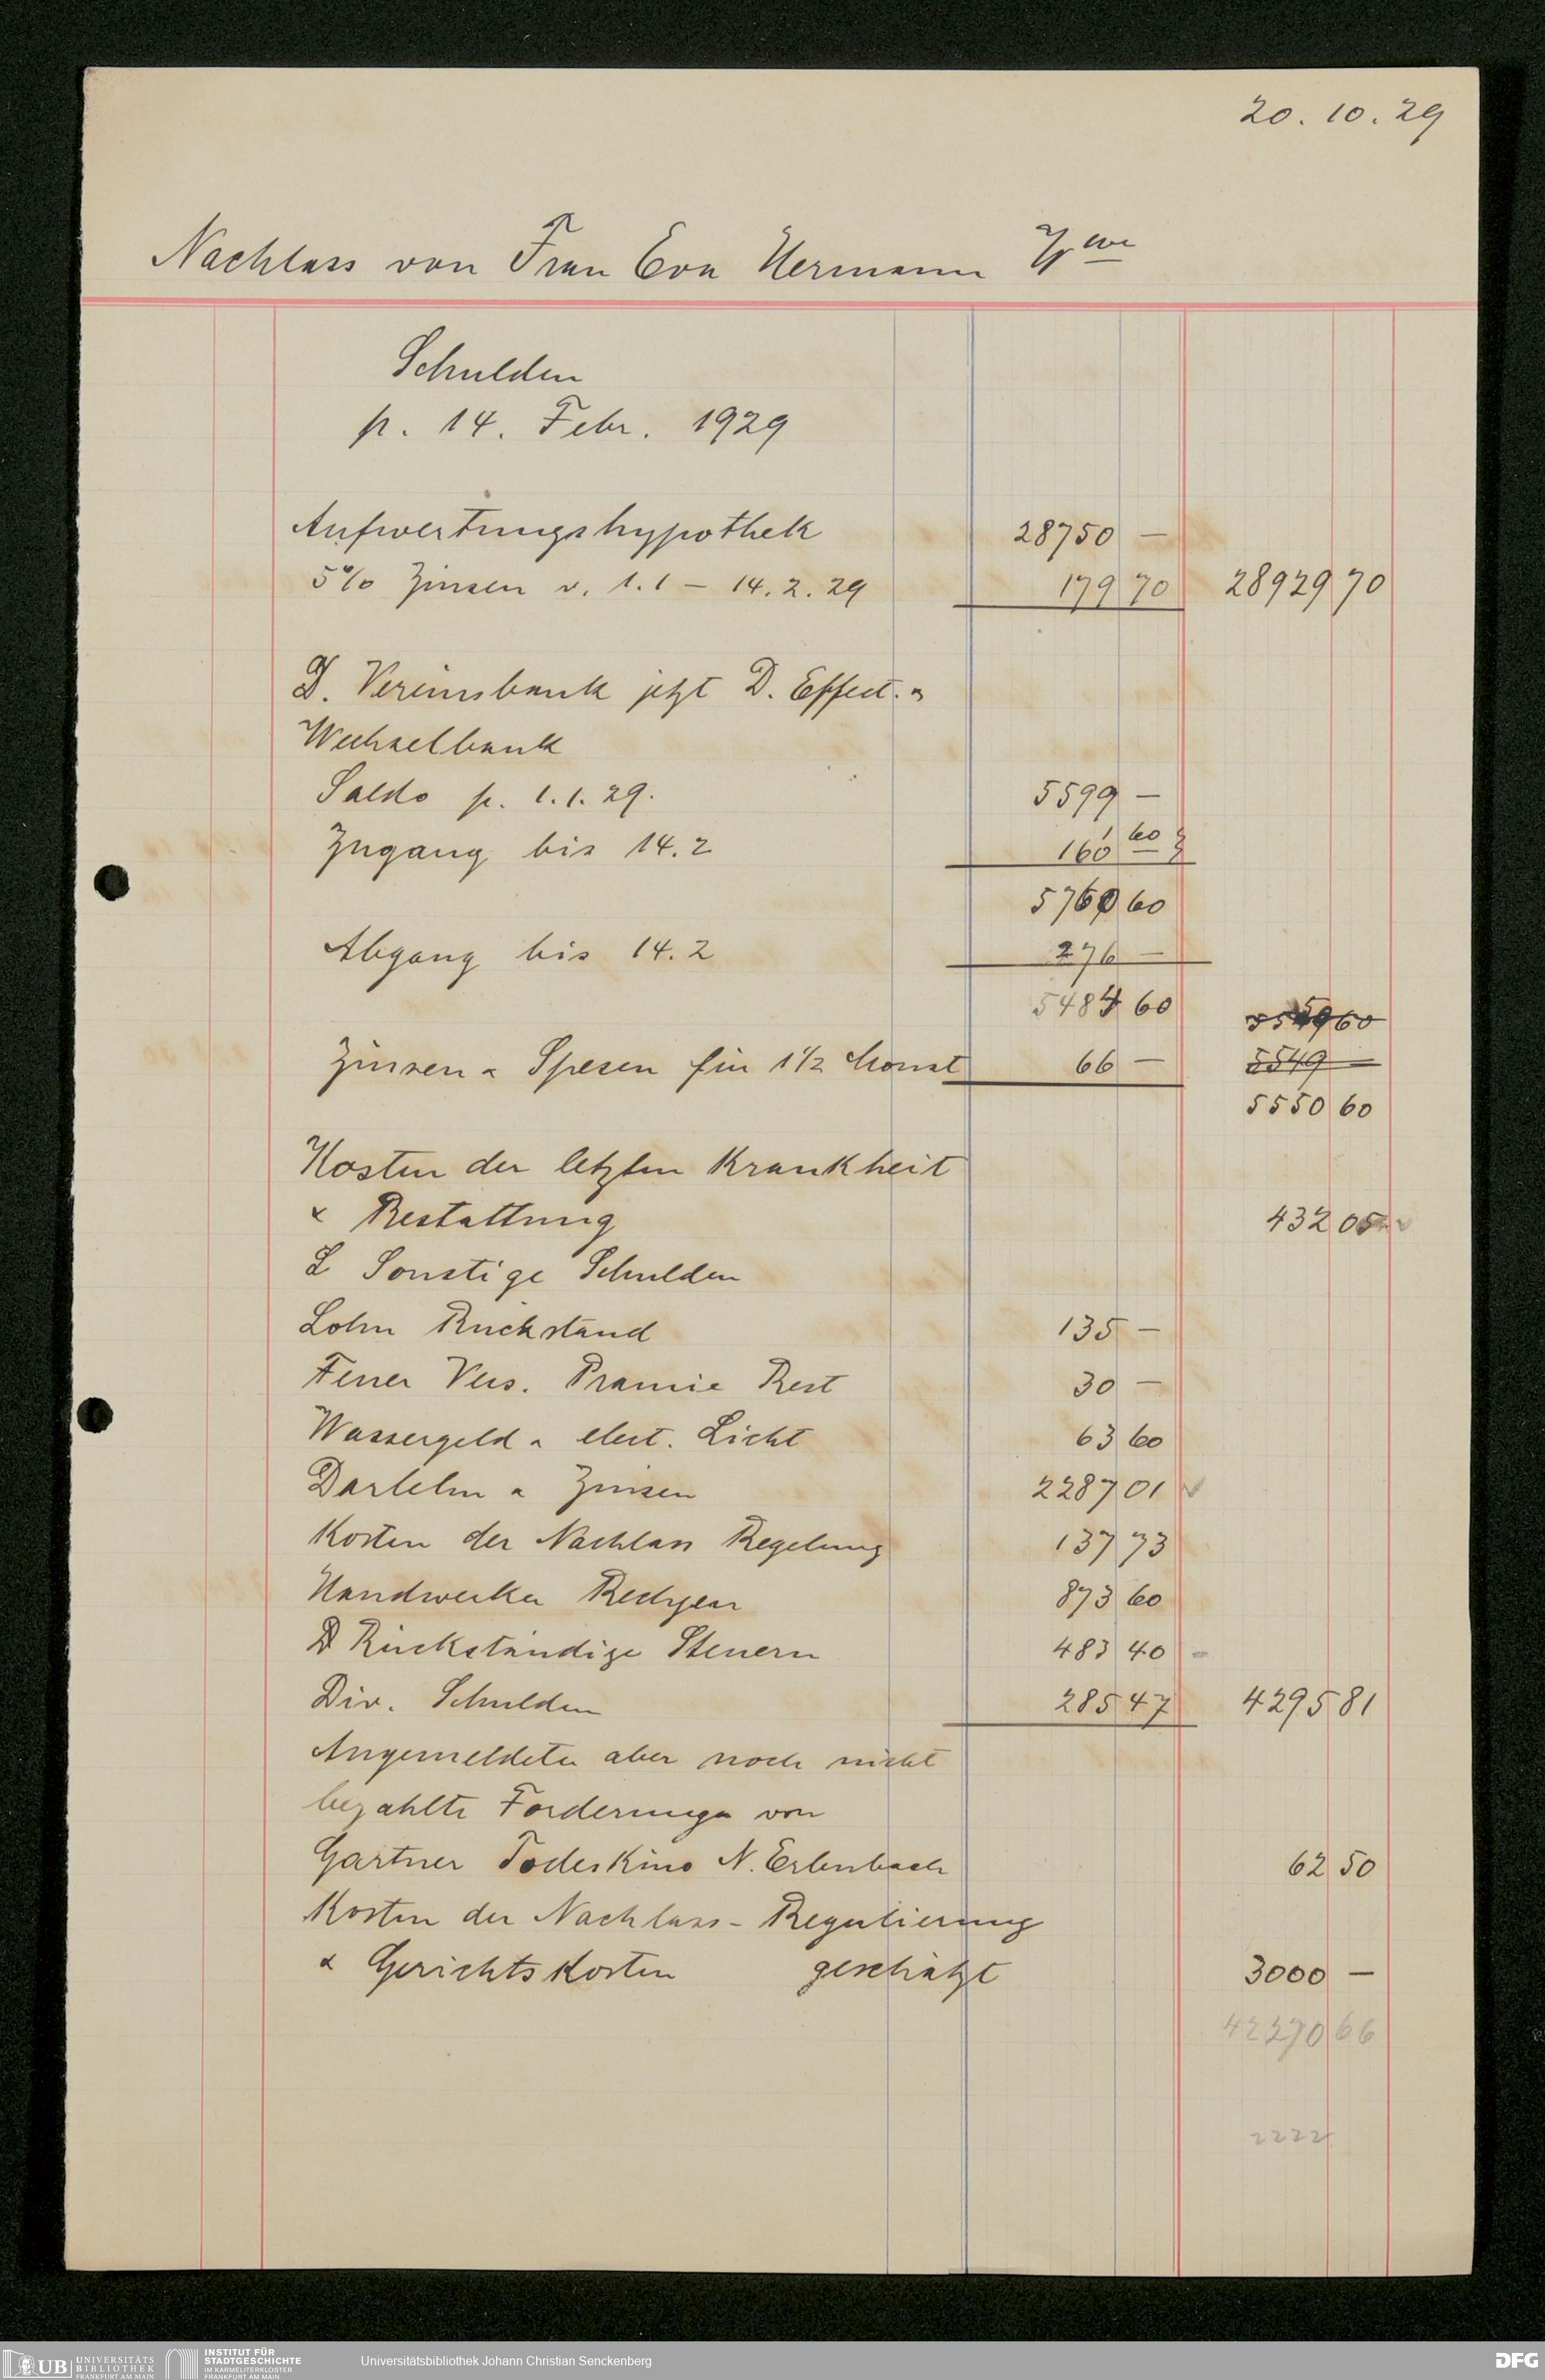 20. 10. 29
Nachlass von Frau Eva Hermann Wwe
Schulden
p. 14. Febr. 1929
Aufwertungshypothek 28750 —
5% Zinsen v. 1.1 – 14.2.29 179 70 28929 70
D. Vereinsbank jetzt D. Effect. u
Wechselbank
Saldo p. 1.1.29. 5599 —
Zugang bis 14.2 160 60
5760 60
Abgang bis 14.2 276 —
5484 60
Zinsen u Spesen für 1½ Monat 66 — 5549 —
5550 60
Kosten der letzten Krankheit
u Bestattung 432 05
Sonstige Schulden
Lohn Rückstand 135 —
Feuer Vers. Prämie Rest 30 —
Wassergeld u elect. Licht 63 60
Darlehn u Zinsen 2287 01
Kosten der Nachlass Regelung 137 73
Handwerker 873 60
Rückständige Steuern 483 40
Div. Schulden 285 47 4295 81
Angemeldete aber noch nicht
bezahlte Forderungen von
Gärtner Todeskino N. Erlenbach 62 50
Kosten der Nachlass-Regulierung
u Gerichtskosten geschätzt 3000 —
42270 66
2222
UB UNIVERSITÄTS
BIBLIOTHEK
FRANKFURT AM MAIN
INSTITUT FÜR
STADTGESCHICHTE
IM KARMELITERKLOSTER
FRANKFURT AM MAIN
Universitätsbibliothek Johann Christian Senckenberg
DFG